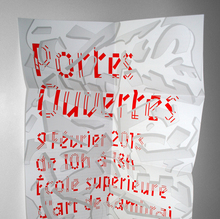 Portes
Ouvertes
9 Février 2013
de 10h à 18h
École supérieure
d'art de Cambrai